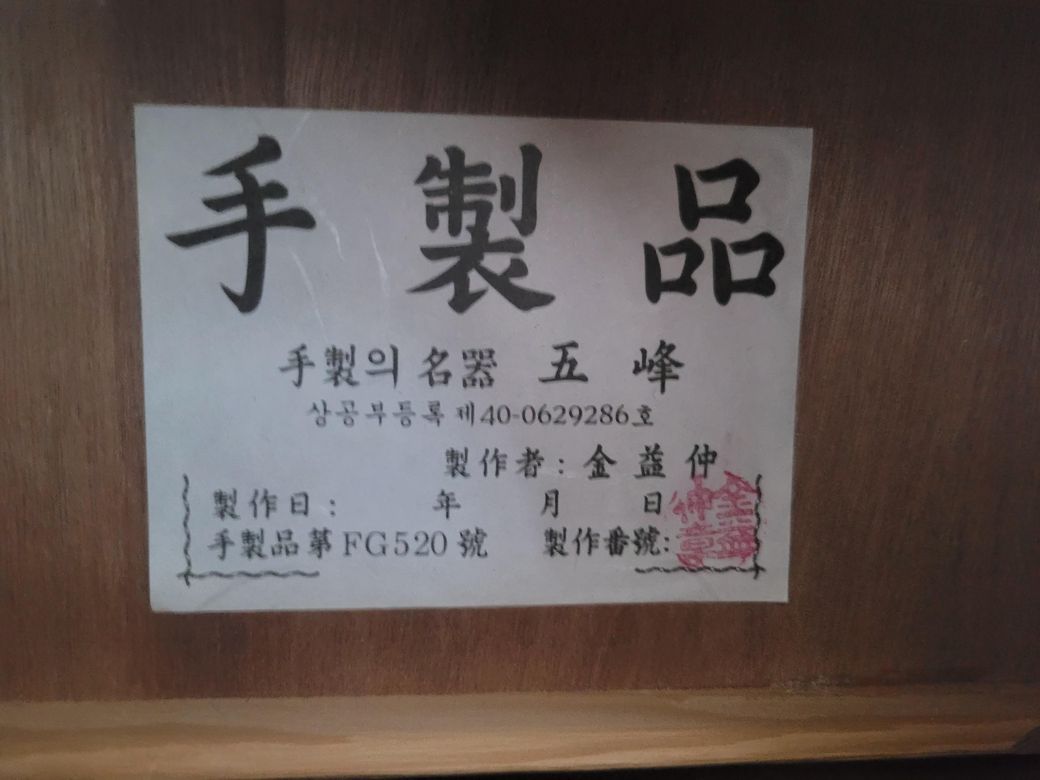 手製品
手製의 名器 五峰
상공부등록 제40-0629286호
製作者: 金益仲
製作日: 年 月 日
手製品第 FG520 號 製作番號: